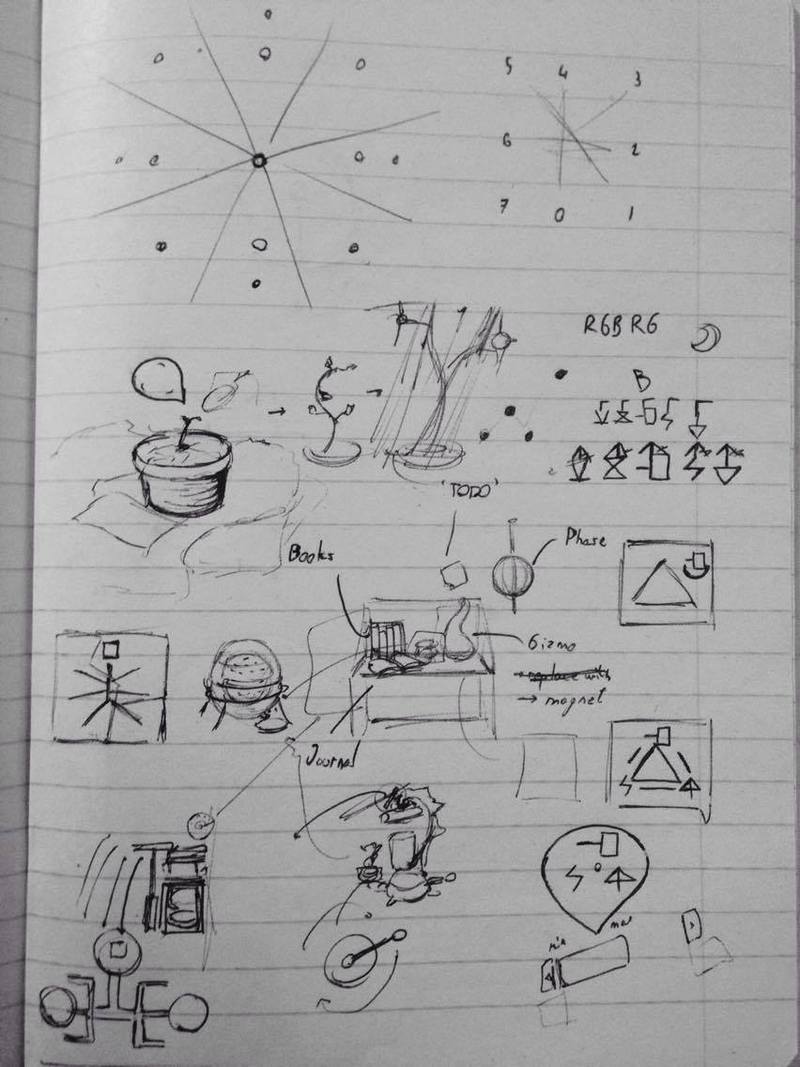 5 4 3
6 2
7 0 1
RGB RG
B
'TODO'
Books
Phase
Gizmo
→ replace with
→ magnet
Journal
min
max